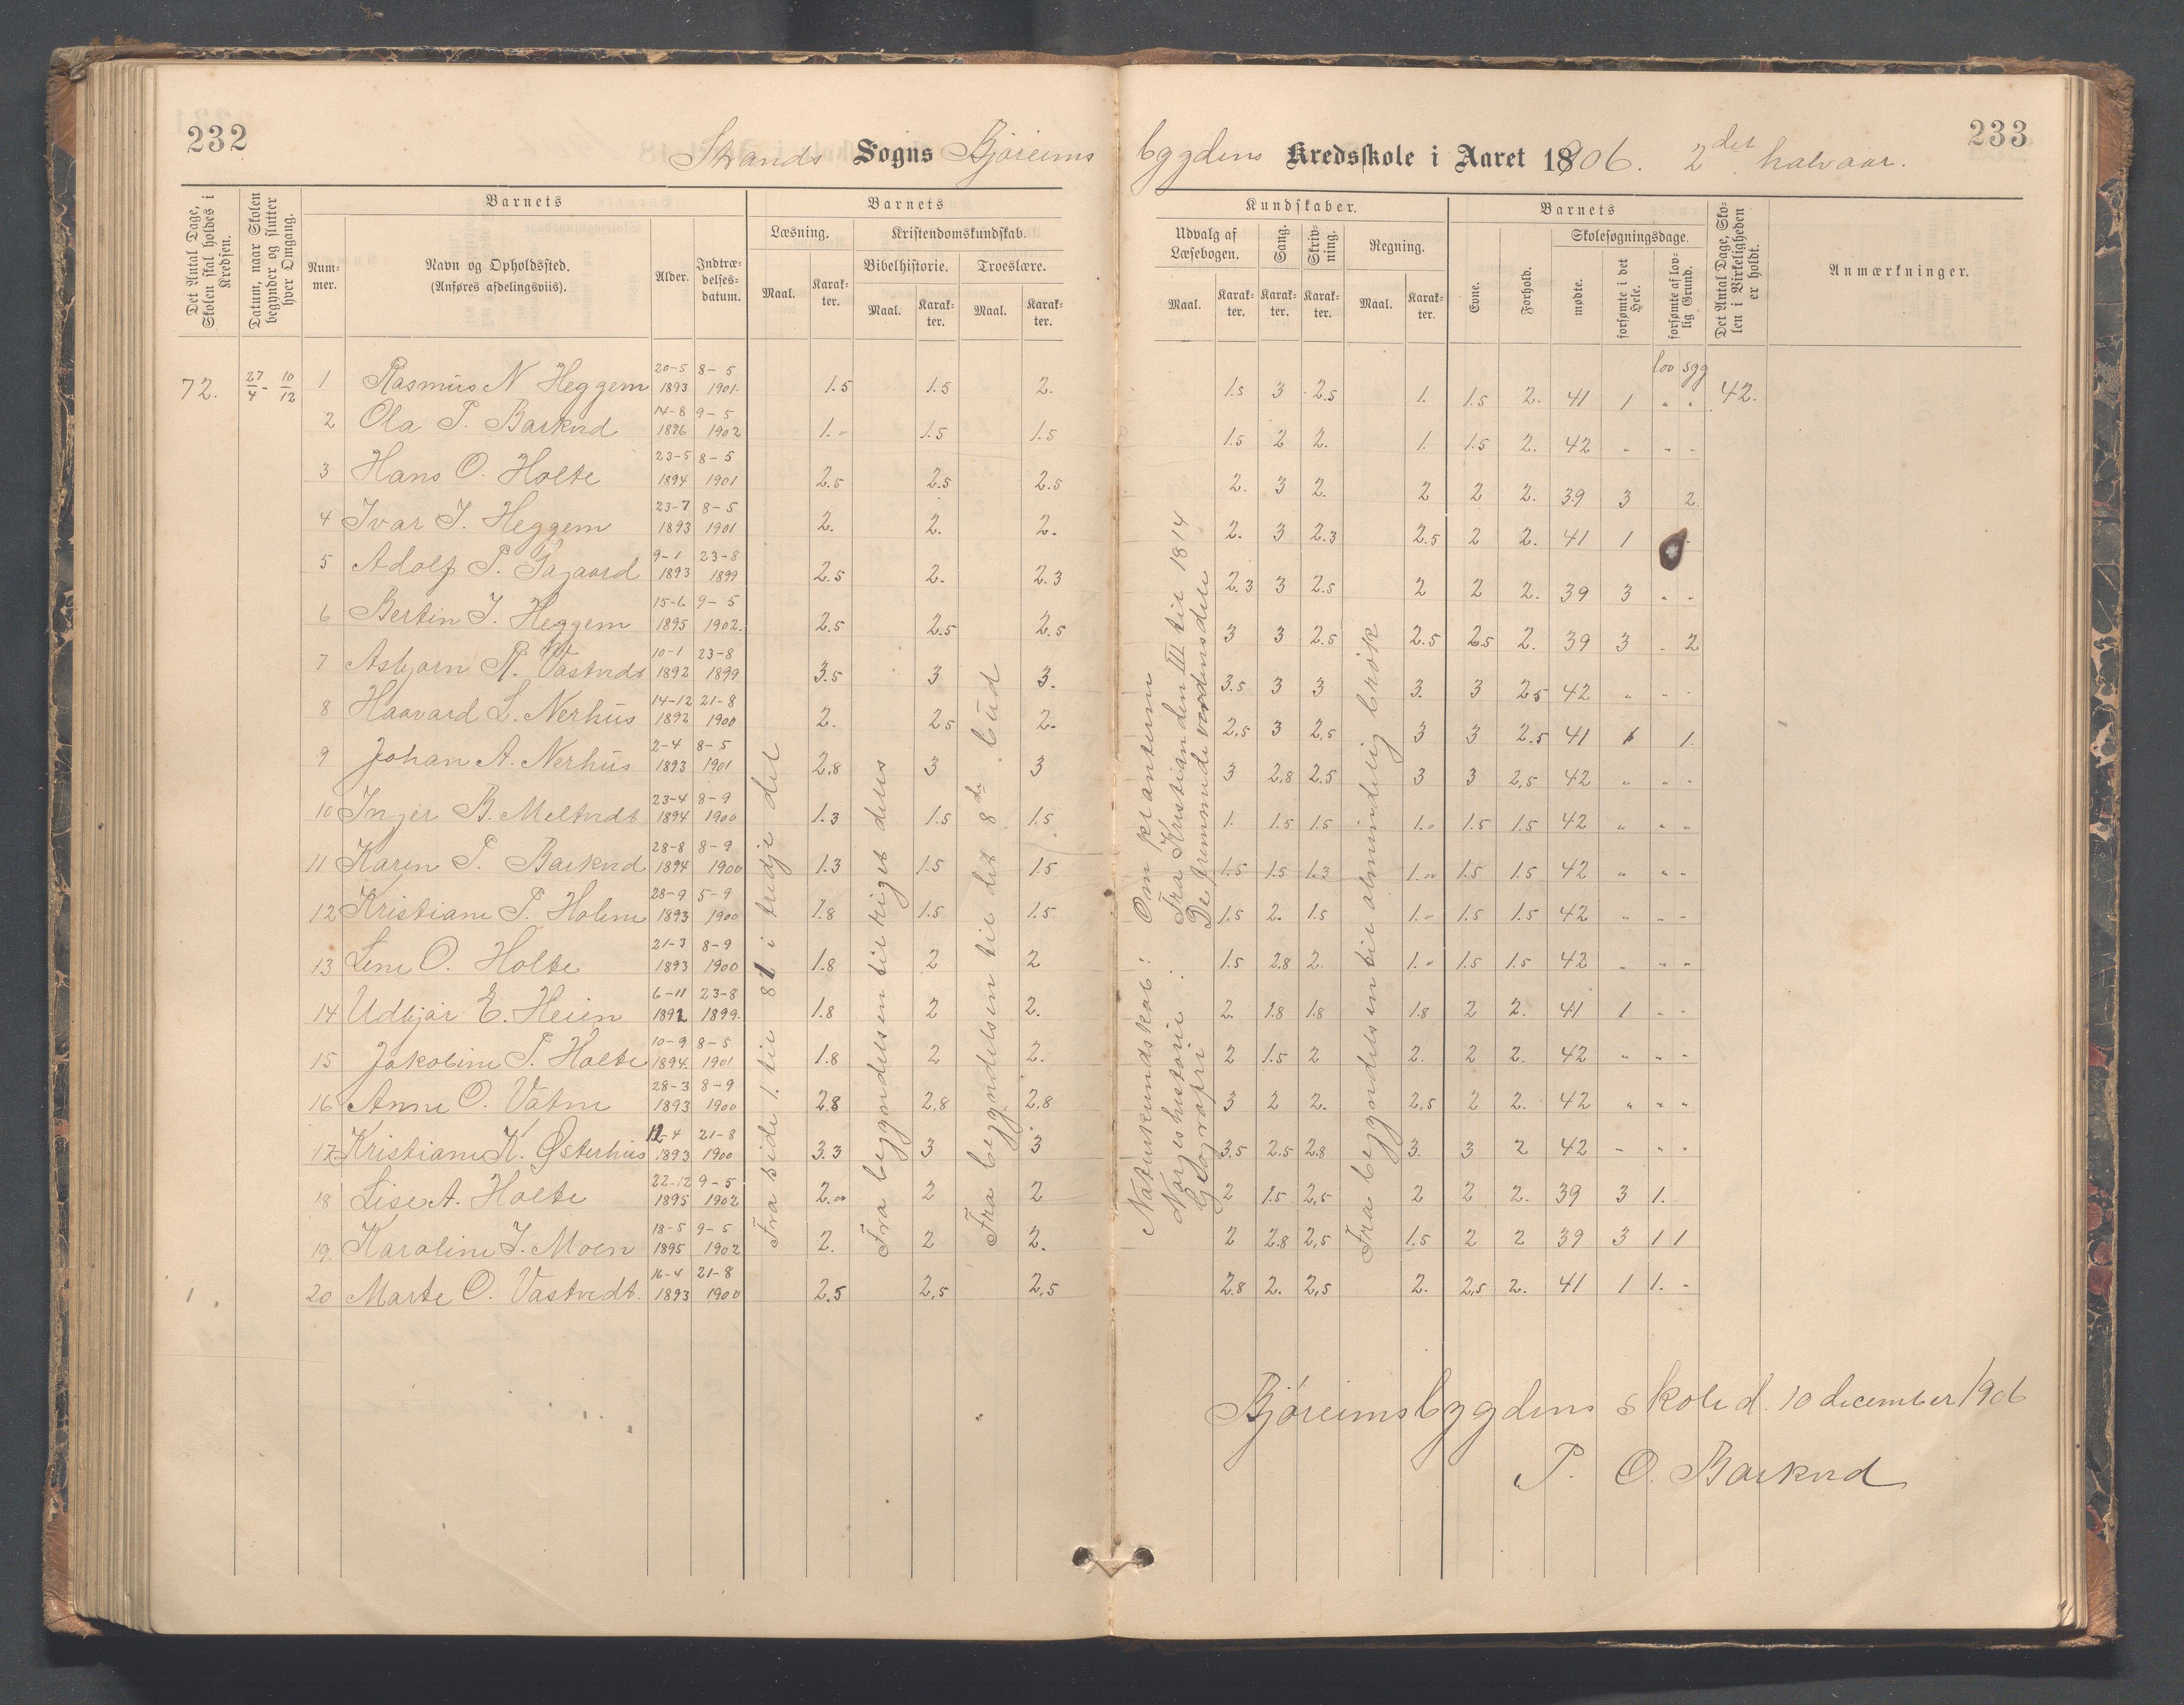 232
Strands Sogns Bjøreims
Det Antal Dage, Skolen skal holdes i Kredsen.
Datum, naar Skolen begynder og slutter hver Omgang.
Barnets
Num-mer.
Navn og Opholdssted.
(Anføres afdelingsviis).
Alder.
Indtræ-delses-datum.
Barnets
Læsning.
Maal.
Karak-ter.
Kristendomskundskab.
Bibelhistorie.
Troeslære.
Maal.
Karak-ter.
Maal.
Karak-ter.
72. 27/4 - 10/12
1 Rasmus N Heggem 20-5 1893 8-5 1901. 1.5 1.5 2.
2 Ola P. Barkvd 14-8 1896 9-5 1902 1.- 1.5 1.5
3 Hans O. Holte 23-5 1894 8-5 1901 2.5 2.5 2.5
4 Ivar I. Heggem 23-7 1893 8-5 1901 2. 2. 2.
5 Adolf P. 9-1 1893 23-8 1899 2.5 2. 2.3
6 Bertin I. Heggem 15-6 1895 9-5 1902. 2.5 2.5 2.5
7 Asbjørn R. Vastvdt 10-1 1892 23-8 1899 3.5 3 3.
8 Haavard L. Nerhús 14-12 1892 21-8 1900 2. 2.5 2.
9 Johan A. Nerhús 2-4 1893 8-5 1901 2.8 3 3
10 Inger B. Meltvdt 23-4 1894 8-9 1900 1.3 1.5 1.5
11 Karen P. Barkvd 28-8 1894 8-9 1900 1.3 1.5 1.5
12 Kristiane P. Holme 28-9 1893 5-9 1900 1.8 1.5 1.5
13 Lene O. Holte 21-3 1893 8-9 1900 1.8 2 2
14 Udbjør E. Heien 6-11 1892 23-8 1899. 1.8 2 2.
15 Jakobine P. Holte 10-9 1894. 8-5 1901 1.8 2 2.
16 Anne O. Vatne 28-3 1893 8-9 1900 2.8 2.8 2.8
17 Kristiane K. Østerhús 12-4 1893 21-8 1900 3.3 3 3
18 Lise A. Holte 22-12 1895 9-5 1902 2.- 2 2
19. Karoline I. Moen 18-5 1895 9-5 1902 2. 2 2.
20 Marte O. Vastvedt. 16-4 1893 21-8 1900 2.5 2,5 2,5
Fra side 1. til 81 i tredje del
Fra begyndelsen til riget deles
Fra begyndelsen til det 8de búd
233
bygdens Kredsskole i Aaret 1906. 2det halvaar.
Kundskaber.
Udvalg af Læsebogen.
Maal.
Karak-ter.
Sang.
Karak-ter.
Skriv-ning.
Karak-ter.
Regning.
Maal.
Karak-ter.
Barnets
Evne.
Forhold.
Skolesøgningsdage.
mødte.
forsømte i det Hele.
forsømte af lov-lig Grund.
Det Antal Dage, Sko-len i Virkeligheden er holdt.
Anmærkninger.
lov sgg
1.5 3 2.5 1. 1.5 2. 41 1 " " 42.
1.5 2 2. 1. 1.5 2. 42 " " "
2. 3 2. 2 2 2. 39 3 2
2. 3 2.3 2.5 2 2. 41 1 -
2.3 3 2.5 2 2 2. 39 3 " -
3 3 2.5 2.5 2.5 2. 39 3 - 2
3.5 3 3 3. 3 2.5 42 " - -
2,5 3 2,5 3 3 2.5 41 1 1.
3 2.8 2.5 3 3 2,5 42 " " -
1. 1.5 1.5 1.- 1.5 1.5 42 " " "
1.5 1.5 1.3 1.- 1.5 1.5 42 " " -
1.5 2. 1.5 1.- 1.5 1.5 42 " " -
1.5 2.8 2. 1.- 1.5 1.5 42 " " -
2. 1.8 1.8 1.8 2 2. 41 1 - -
2 1.5 2 2. 2 2. 42 " " -
3 2 2. 2,5 2 2. 42 " " "
3.5 2.5 2.8 3. 3 2 42 " " "
2 1.5 2,5 2 2 2. 39 3 1.
2 2.8 2,5 1.5 2 2 39 3 1 1
2.8 2. 2,5 2. 2,5 2. 41 1 1. -
Naturkundskab: Om planterne
Norges historie: Fra Kristian den III til 1814
Geografi De fremmede verdensdele
Fra begyndelsen til almindelig brøk
Bjøreimsbygdens skole d. 10 december 1906
P. O. Barkvd